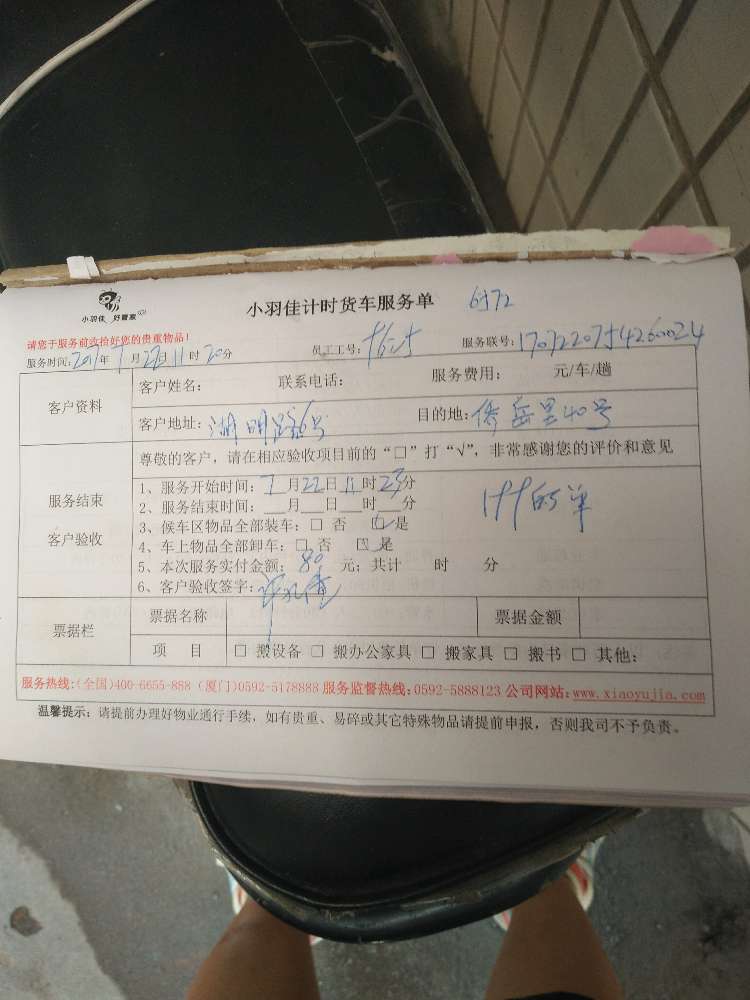 小羽佳计时货车服务单 6572
小羽佳 好管家
请您于服务前收拾好您的贵重物品!
服务时间:2017年7月22日11时20分 员工工号: 服务联号:
客户资料
客户姓名: 联系电话: 服务费用: 元/车/趟
客户地址:湖明路6号 目的地:侨岳里40号
服务结束
客户验收
尊敬的客户,请在相应验收项目前的“□”打“√”,非常感谢您的评价和意见
1、服务开始时间:7月22日11时25分
2、服务结束时间:___月___日___时___分
3、候车区物品全部装车:□ 否 ☑ 是
4、车上物品全部卸车:□ 否 ☑ 是
5、本次服务实付金额:80 元;共计 时 分
6、客户验收签字:
票据栏
票据名称 票据金额
项 目 □ 搬设备 □ 搬办公家具 □ 搬家具 □ 搬书 □ 其他:
服务热线:(全国)400-6655-858 (厦门)0592-5178888 服务监督热线:0592-5888123 公司网站:www.xiaoyujia.com
温馨提示:请提前办理好物业通行手续,如有贵重、易碎或其它特殊物品请提前申报,否则我司不予负责。